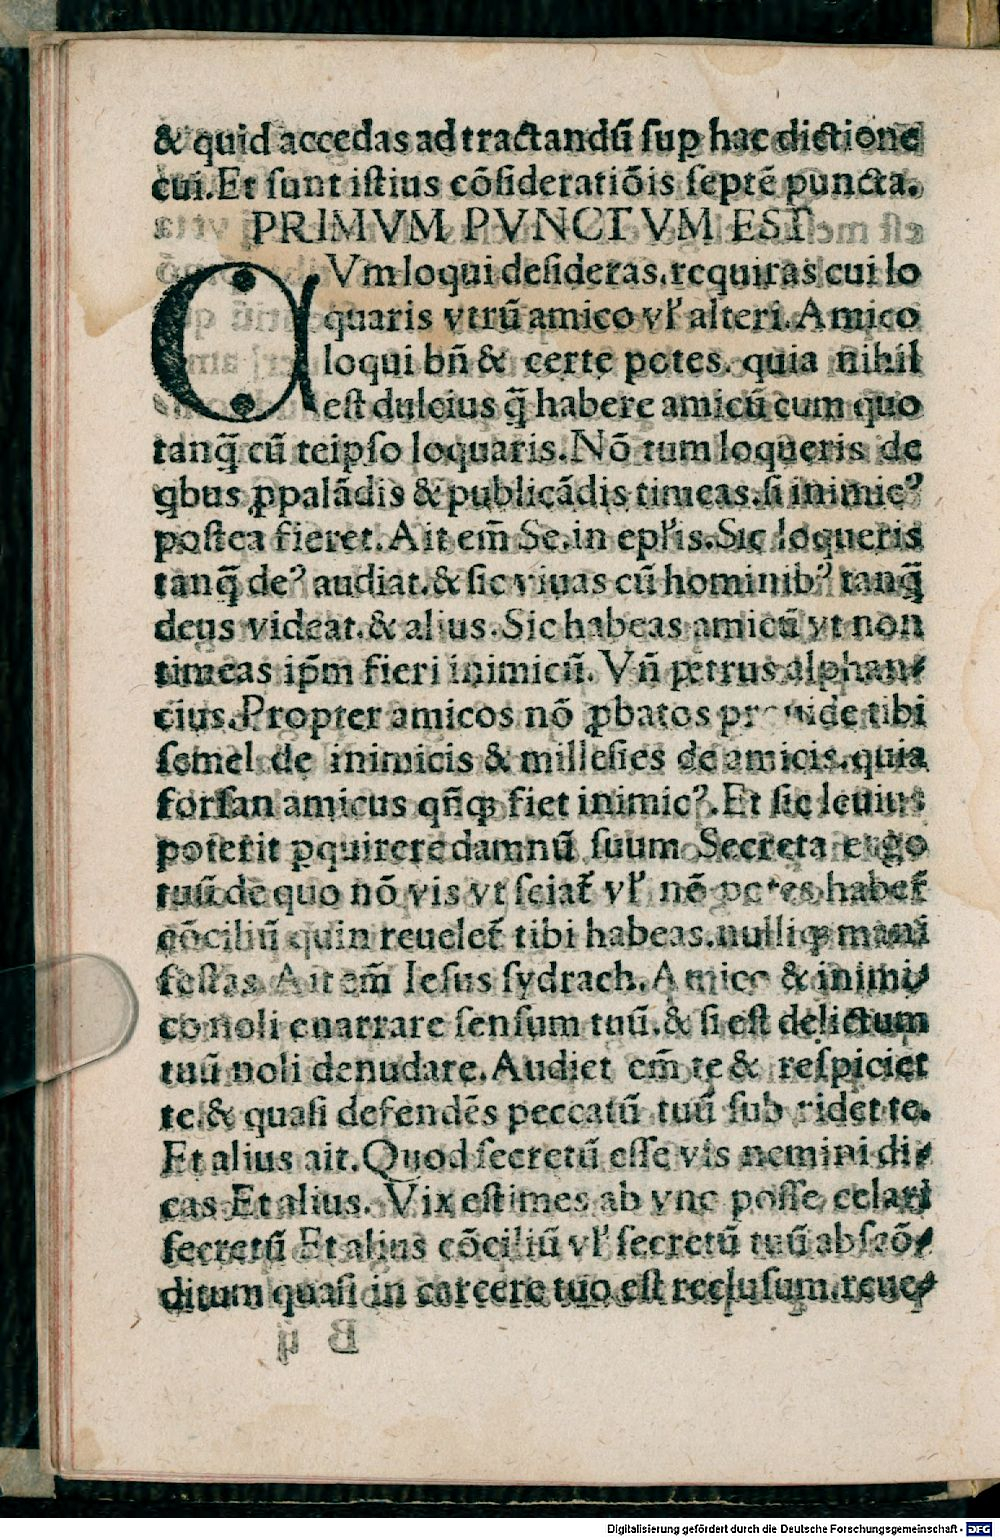 & quid accedas ad tractandū ſup hac dictione
cui. Et ſunt iſtius cōſideratiōis ſeptē puncta.
PRIMVM PVNCTVM EST
CVm loqui deſideras. requiras cui lo
quaris vtrū amico vľ alteri. Amico
loqui bñ & certe potes. quia nihil
eſt dulcius q̄ habere amicū cum quo
tanq̄ cū teipſo loquaris. Nō tum loqueris de
qbus ꝓpalādis & publicādis timeas. ſi inimicꝰ
poſtea fieret. Ait em̄ Se. in epľis. Sic loqueris
tanq̄ deꝰ audiat. & ſic viuas cū hominibꝰ tanq̄
deus videat. & alius. Sic habeas amicū vt non
timeas ip̄m fieri inimicū. Vñ petrus alphan⸗
cius. Propter amicos nō ꝓbatos prouide tibi
ſemel de inimicis & milleſies de amicis. quia
forſan amicus qñqꝫ fiet inimicꝰ. Et ſic leuius
poterit ꝑquirere damnū ſuum Secreta ergo
tuū de quo nō vis vt ſciat̄ vľ nō potes habet̄
cōciliū quin reuelet̄ tibi habeas. nulliqꝫ mani
feſtas Ait em̄ Ieſus ſydrach. Amico & inimi⸗
co noli enarrare ſenſum tuū. & ſi eſt delictum
tuū noli denudare. Audiet em̄ te & reſpiciet
te. & quaſi defendēs peccatū tuū ſub ridet te.
Et alius ait. Quod ſecretū eſſe vis nemini di⸗
cas Et alius. Vix eſtimes ab vno poſſe celari
ſecretū Et alius cōciliū vľ ſecretū tuū abſcō⸗
ditum quaſi in carcere tuo eſt recluſum. reue⸗
Digitalisierung gefördert durch die Deutsche Forschungsgemeinschaft - DFG